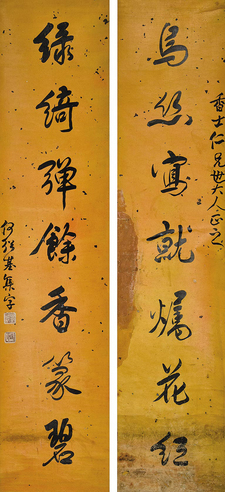 烏絲寫就燭花紅
香士仁兄世大人正之
綠綺彈餘香篆碧
何紹基集字